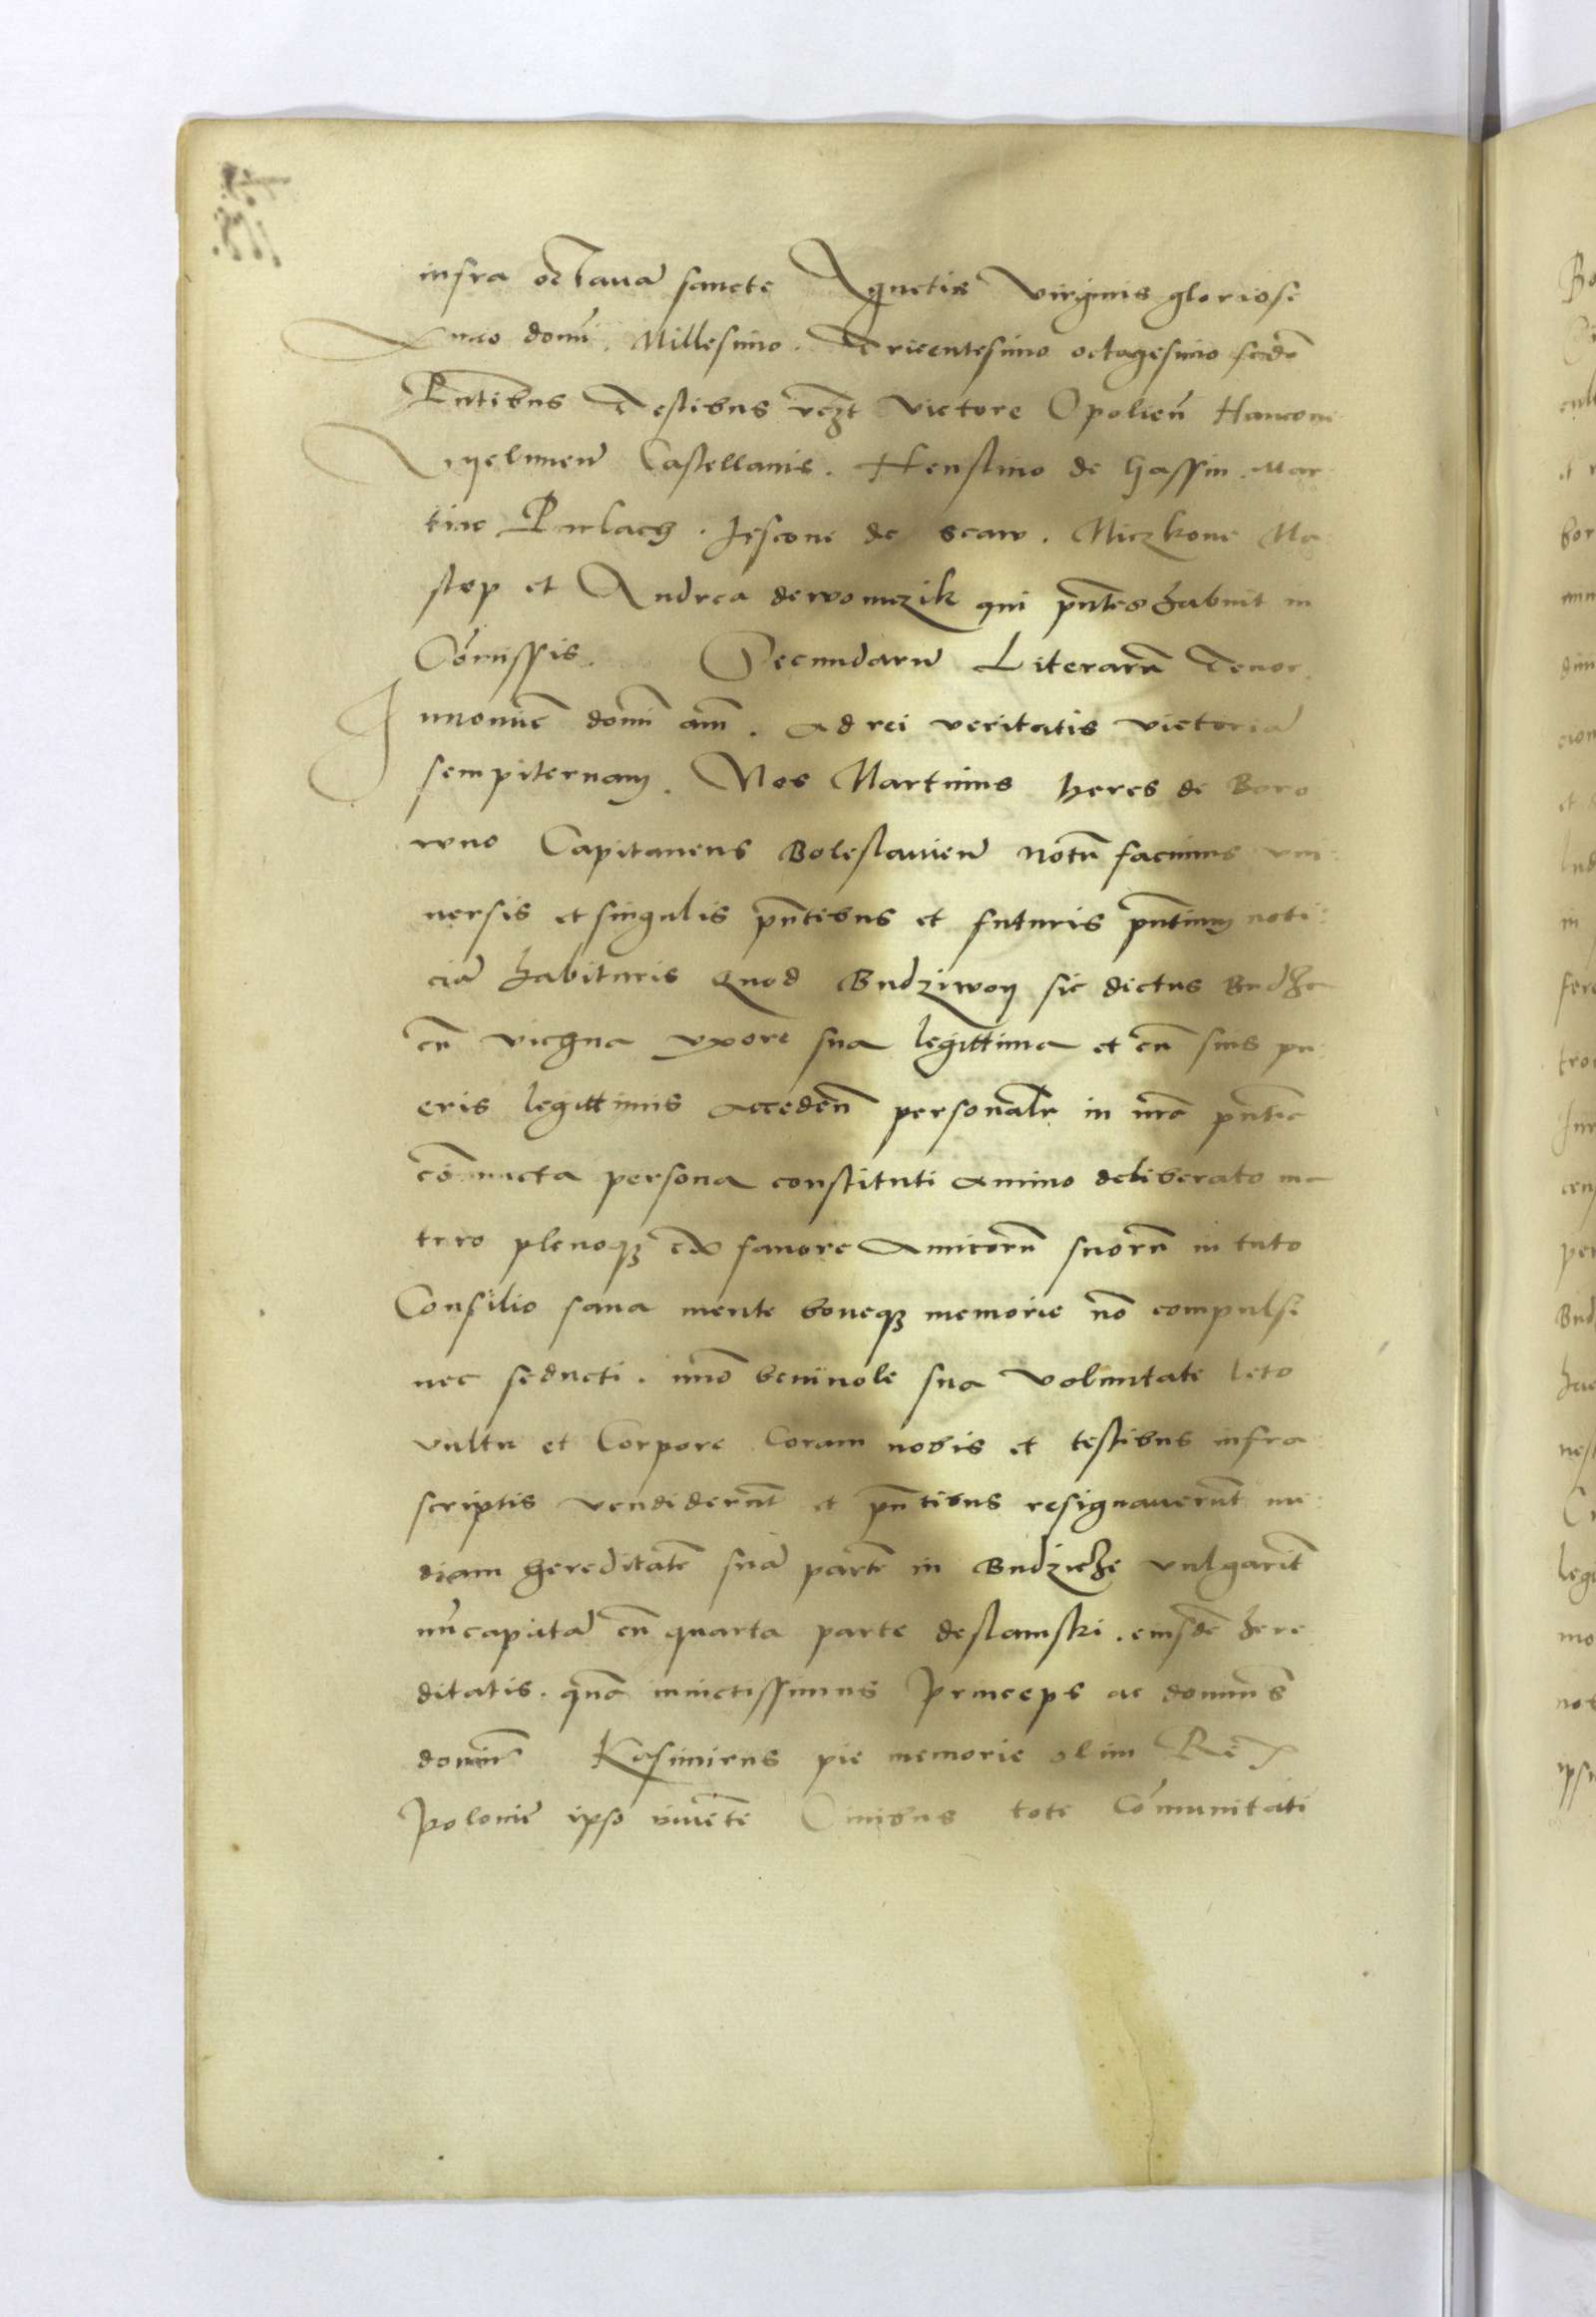 infra octauā sancte Agnetis virginis gloriose
Anno domī. Millesimo. Tricentesimo octagesimo scdō
Pntibus Testibus vcꝫt Victore Opolieñ Hancone
Vyeluneñ Castellanis. Henslino de hassin. Mar
tino Pirlach. Jescone de scaw. Niczkone Na
step et Andrea de womczik qui pñtes habuit in
Cōmissis. Secundarū Literarū Tenor.
In nomīe domī am̄. ad rei veritatis victoriā
sempiternam. Nos Martinus heres de Boro
wno Capitaneus Boleslauieñ Notū facimus vni:
uersis et singulis pñtibus et futuris pñtium noti:
ciā habituris Quod Budziwoy sic dictus
cū vichna vxore sua legittima et cū suis pu:
eris legittimis accedeñ personalr in nrā pñtia
cōiuncta persona constituti animo deliberato ma
turo plenoqꝫ favore Amicorū suorū in tuto
Consilio sana mente boneqꝫ memorie nō compulsi
nec seducti. imō beniuole sua voluntate leto
vultu et Corpore Coram nobis et testibus infra
scriptis vendiderūt et pñtibus resignauerūt me:
diam hereditatē suā partē in Budziche vulgarit
nūcapatā cū quarta parte deslawski. eiusdē here
ditatis. quā inuictissimus princeps ac dominus
domiñ Kasimirus pie memorie olim Rex
Polonie ipso viuēte Ciuibus tote Cōmunitati